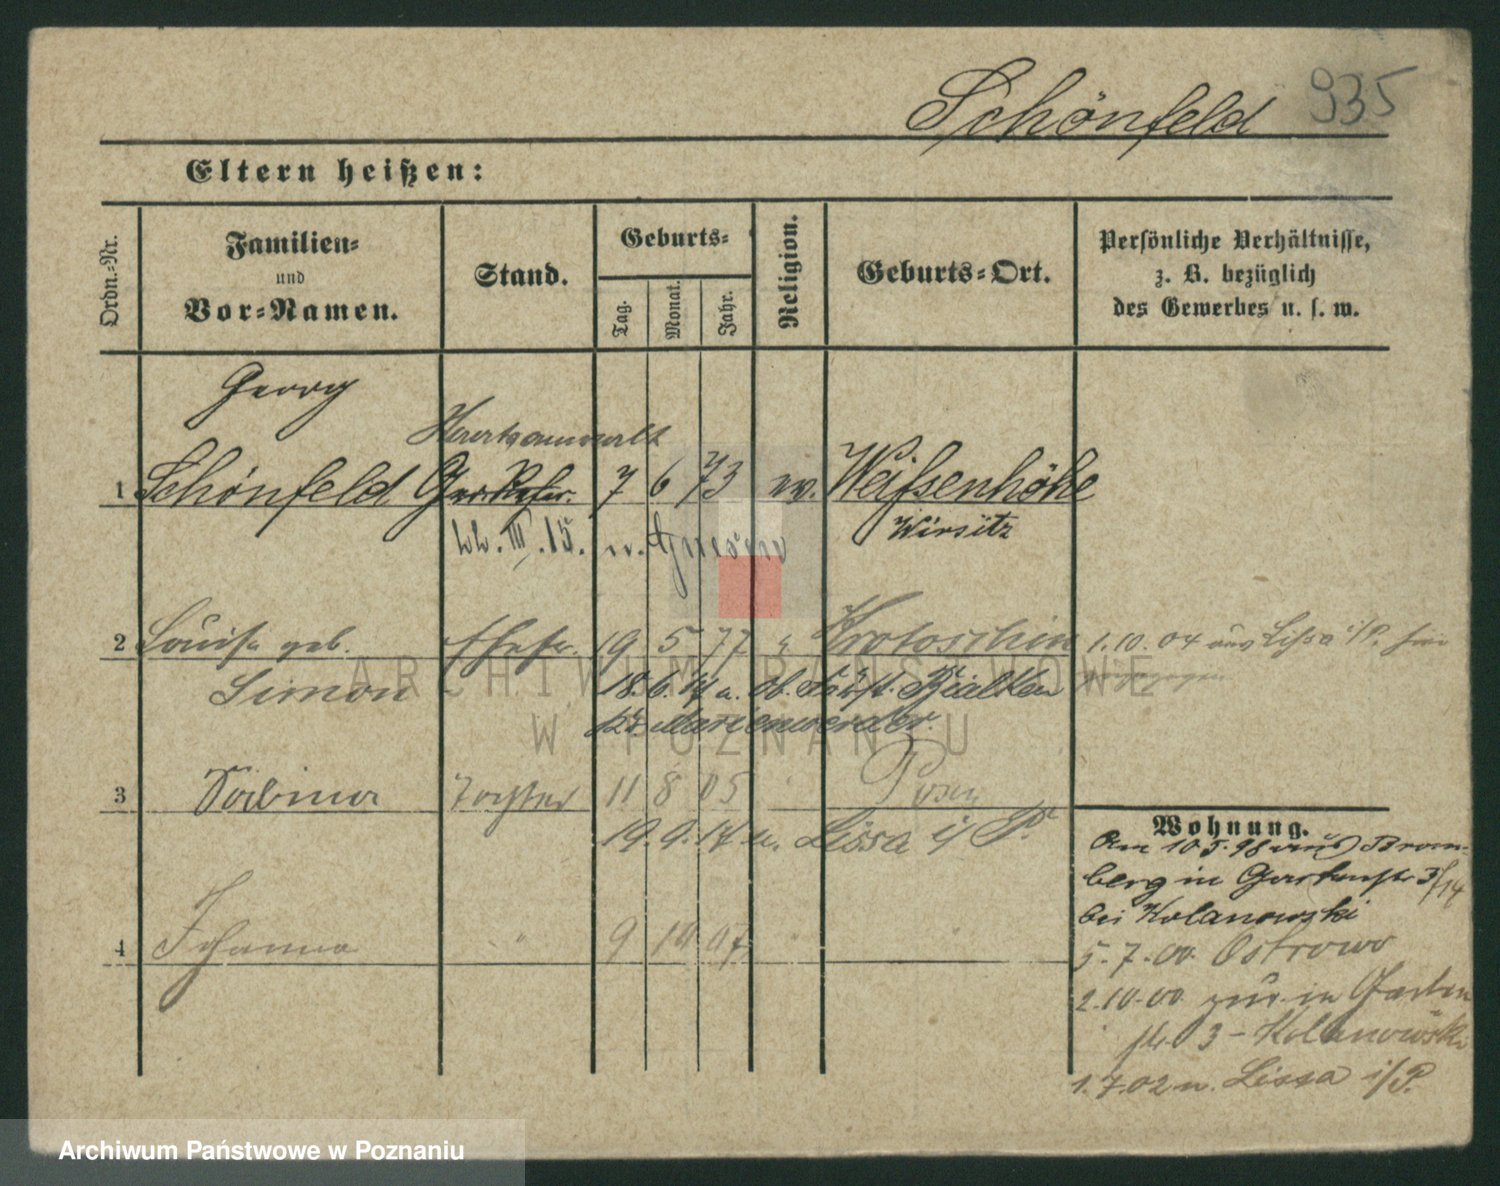 Schönfeld 935
Eltern heißen:
Ordn.-Nr.
Familien-
und
Vor-Namen.
Stand.
Geburts-
Tag.
Monat.
Jahr.
Religion.
Geburts-Ort.
Persönliche Verhältnisse,
z. B. bezüglich
des Gewerbes u. s. w.
Georg
1 Schönfeld Ger. Refer. 7 6 73 ev. Weißenhöhe
Wirsitz
22. III. 15. n.
2 Louise geb. Ehefr. 19 5 77 " Krotoschin 1.10.04 aus Lissa i/P. hier
Simon 18.6. u. Ob. Bialken
Kr. Marienwerder.
3 Tochter 11 8 05 " Posen
19.9.14 n. Lissa i/P.
4 Johanna " 9 10 07 " "
Wohnung.
Am 10 5. 98 aus Brom-
berg in Gartenstr 3/14
bei Kolanowski
5.7.00. Ostrowo
2.10.00 zur. in Garten
str. 3 - Kolanowski
1.7.02 n. Lissa i/P.
ARCHIWUM PAŃSTWOWE
W POZNANIU
Archiwum Państwowe w Poznaniu